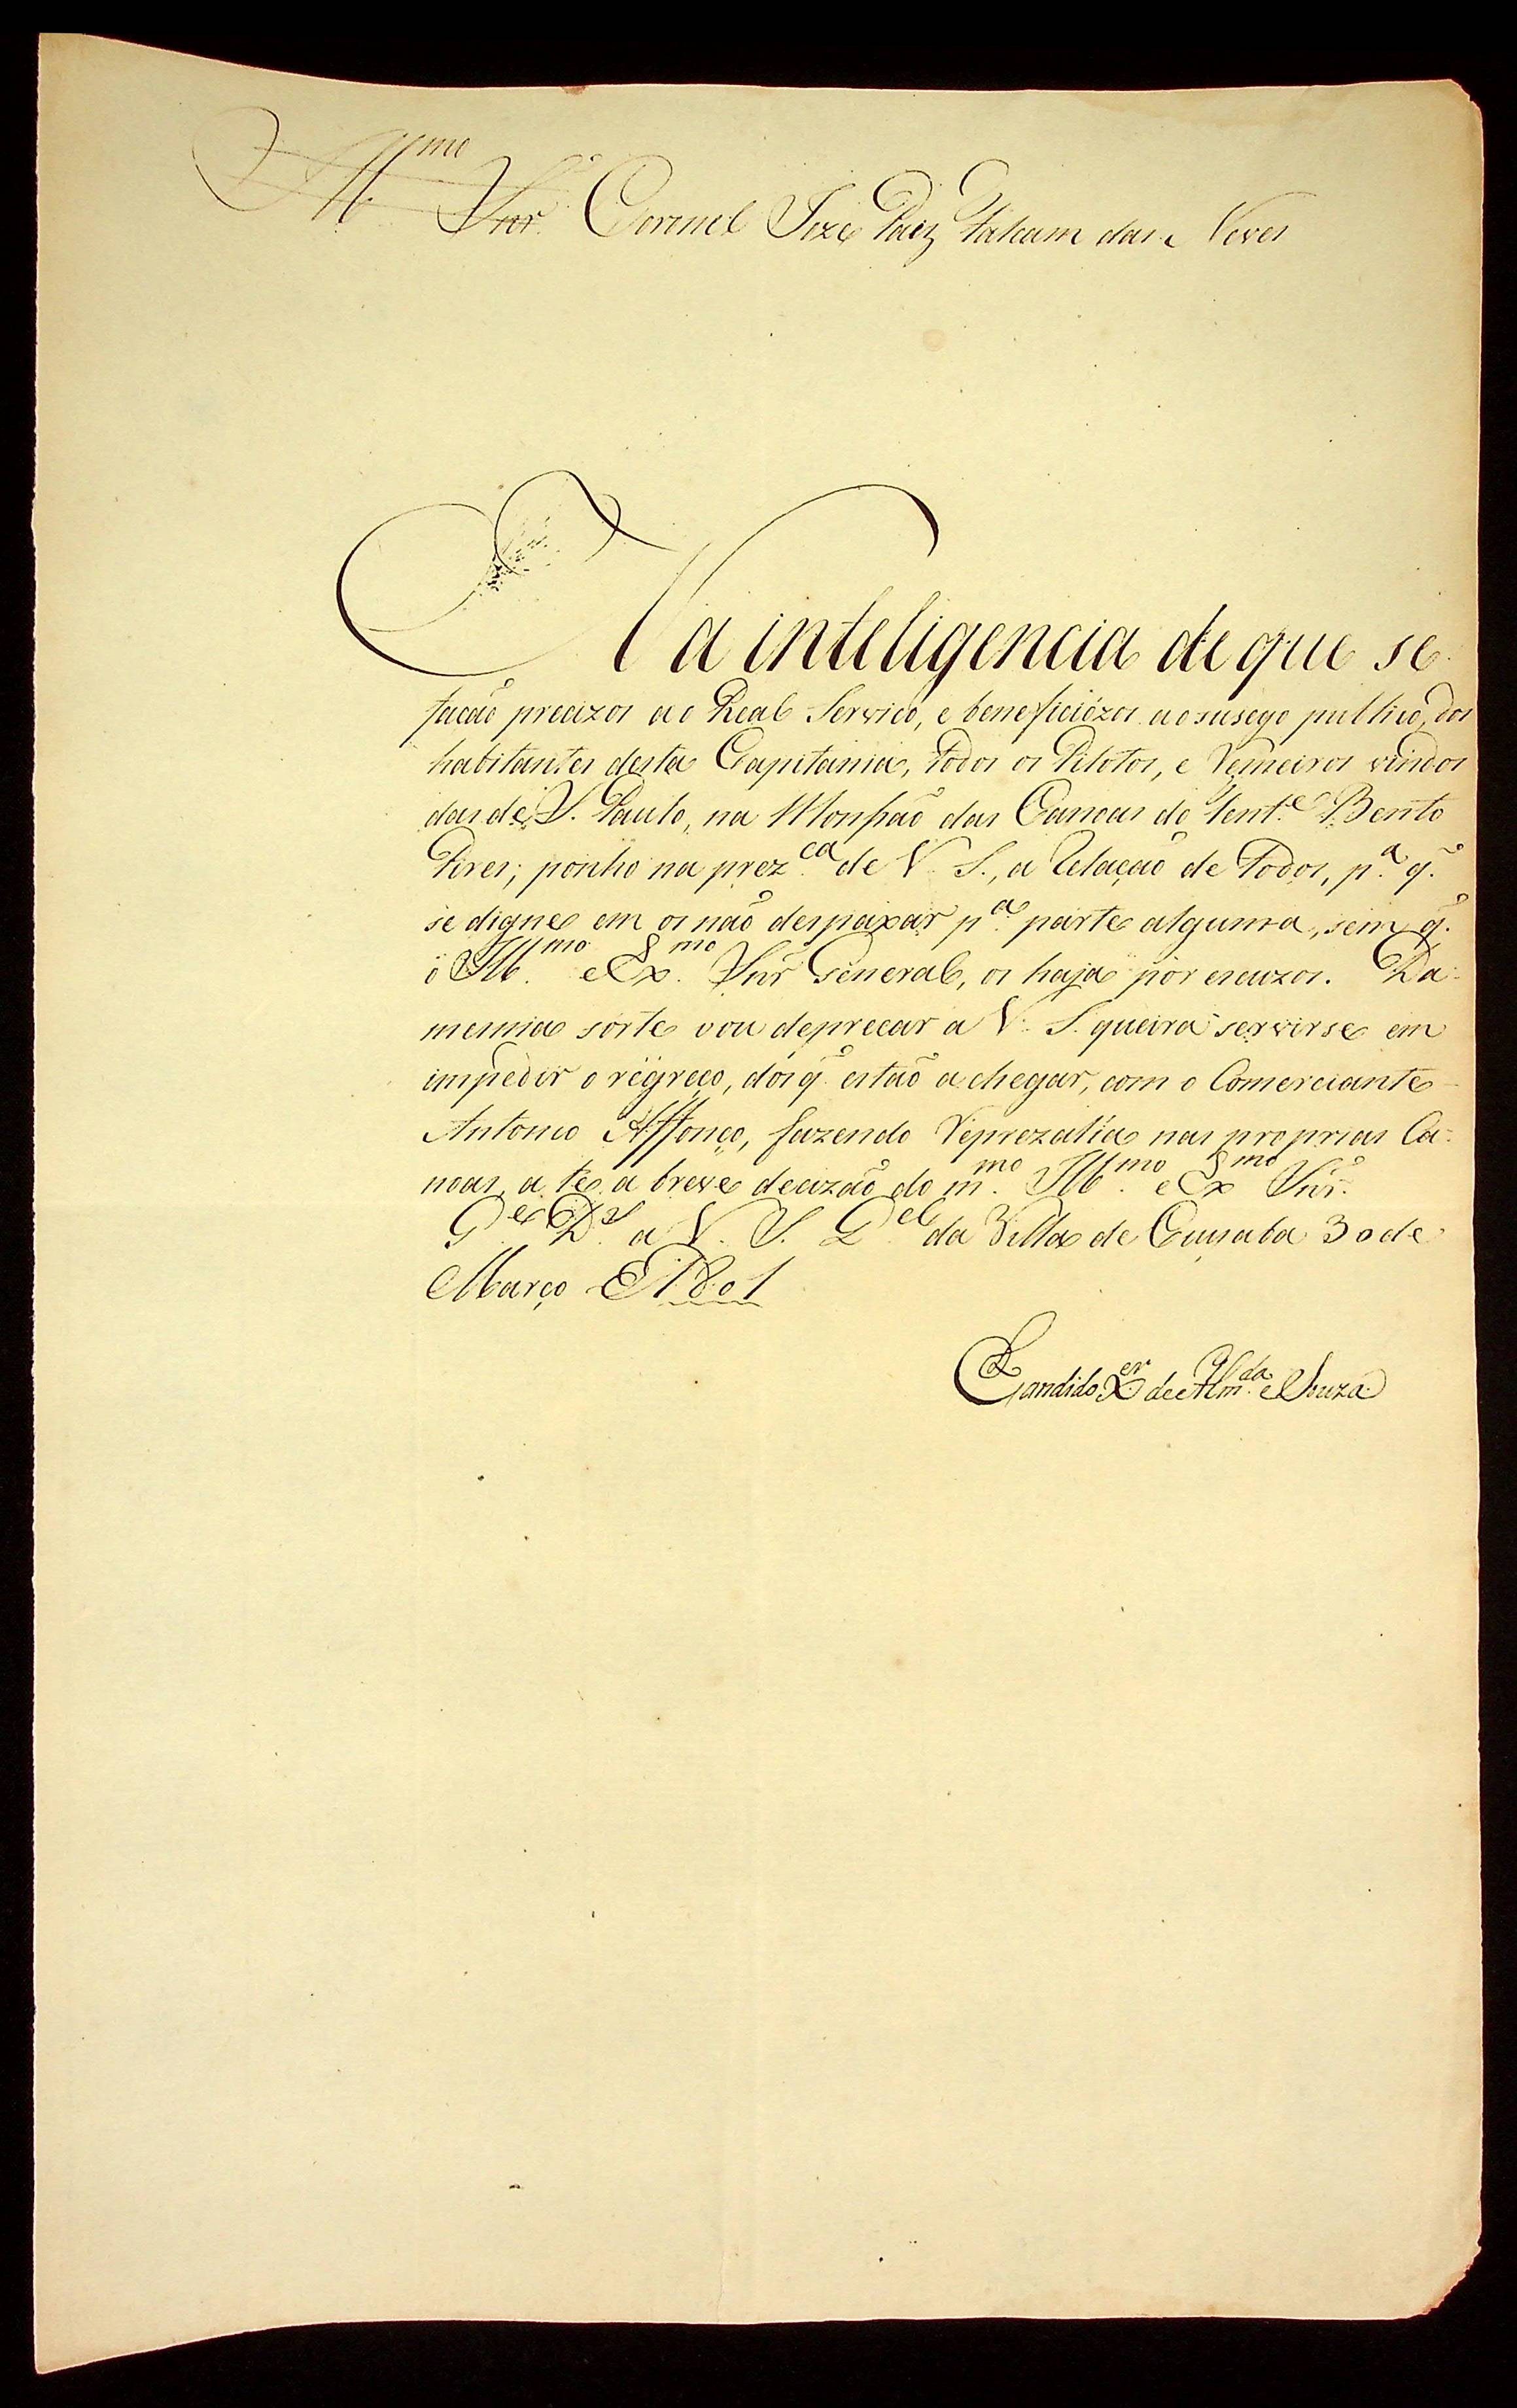 Ill.mo Snr. Coronel Joze Paez Falcam das Neves
Na inteligencia de que se
facaõ precizos ao Real Serviço, e beneficiózos ao susego publico, dos
habitantes desta Capitania, todos os Pilotos, e Remeiros vindos
das de S. Paulo, na Monçaõ das Canoas do Tent.e Bento
Pires; ponho na prez.ca de V. S., a Relaçaõ de todos, p.a q.
se digne em os naõ despaxar p.a parte alguma, sem q.
o Ill.mo e Ex.mo Snr General, os haja por escuzos. Da
mesma sorte vou deprecar a V. S. queira servirse em
impedir o regreço, dos q estaõ a chegar, com o Comerciante
Antonio Affonço, fazendo Reprezalia nas proprias Ca-
noas, a te a breve decizaõ do m.mo Ill.mo e Ex.mo Snr.
G.e D.s a V. S. Q.el da Villa de Cuyaba 30 de
Março de 1801
Candido X.er de Alm.da e Souza